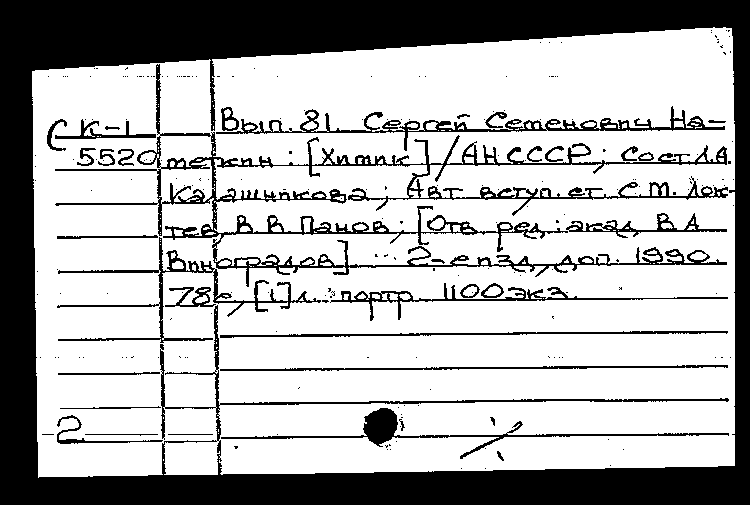 С К-1 Вып. 81. Сергей Семенович На-
5520 меткин : [Химик] / АН СССР ; Сост Л.А.
Калашникова ; Авт вступ. ст. С.М. Лок-
тев, В.В. Панов ; [Отв ред. : акад В.А
Виноградов] ··· 2-е изд, доп. 1990.
78с, [1] л. портр. 1100экз.
2